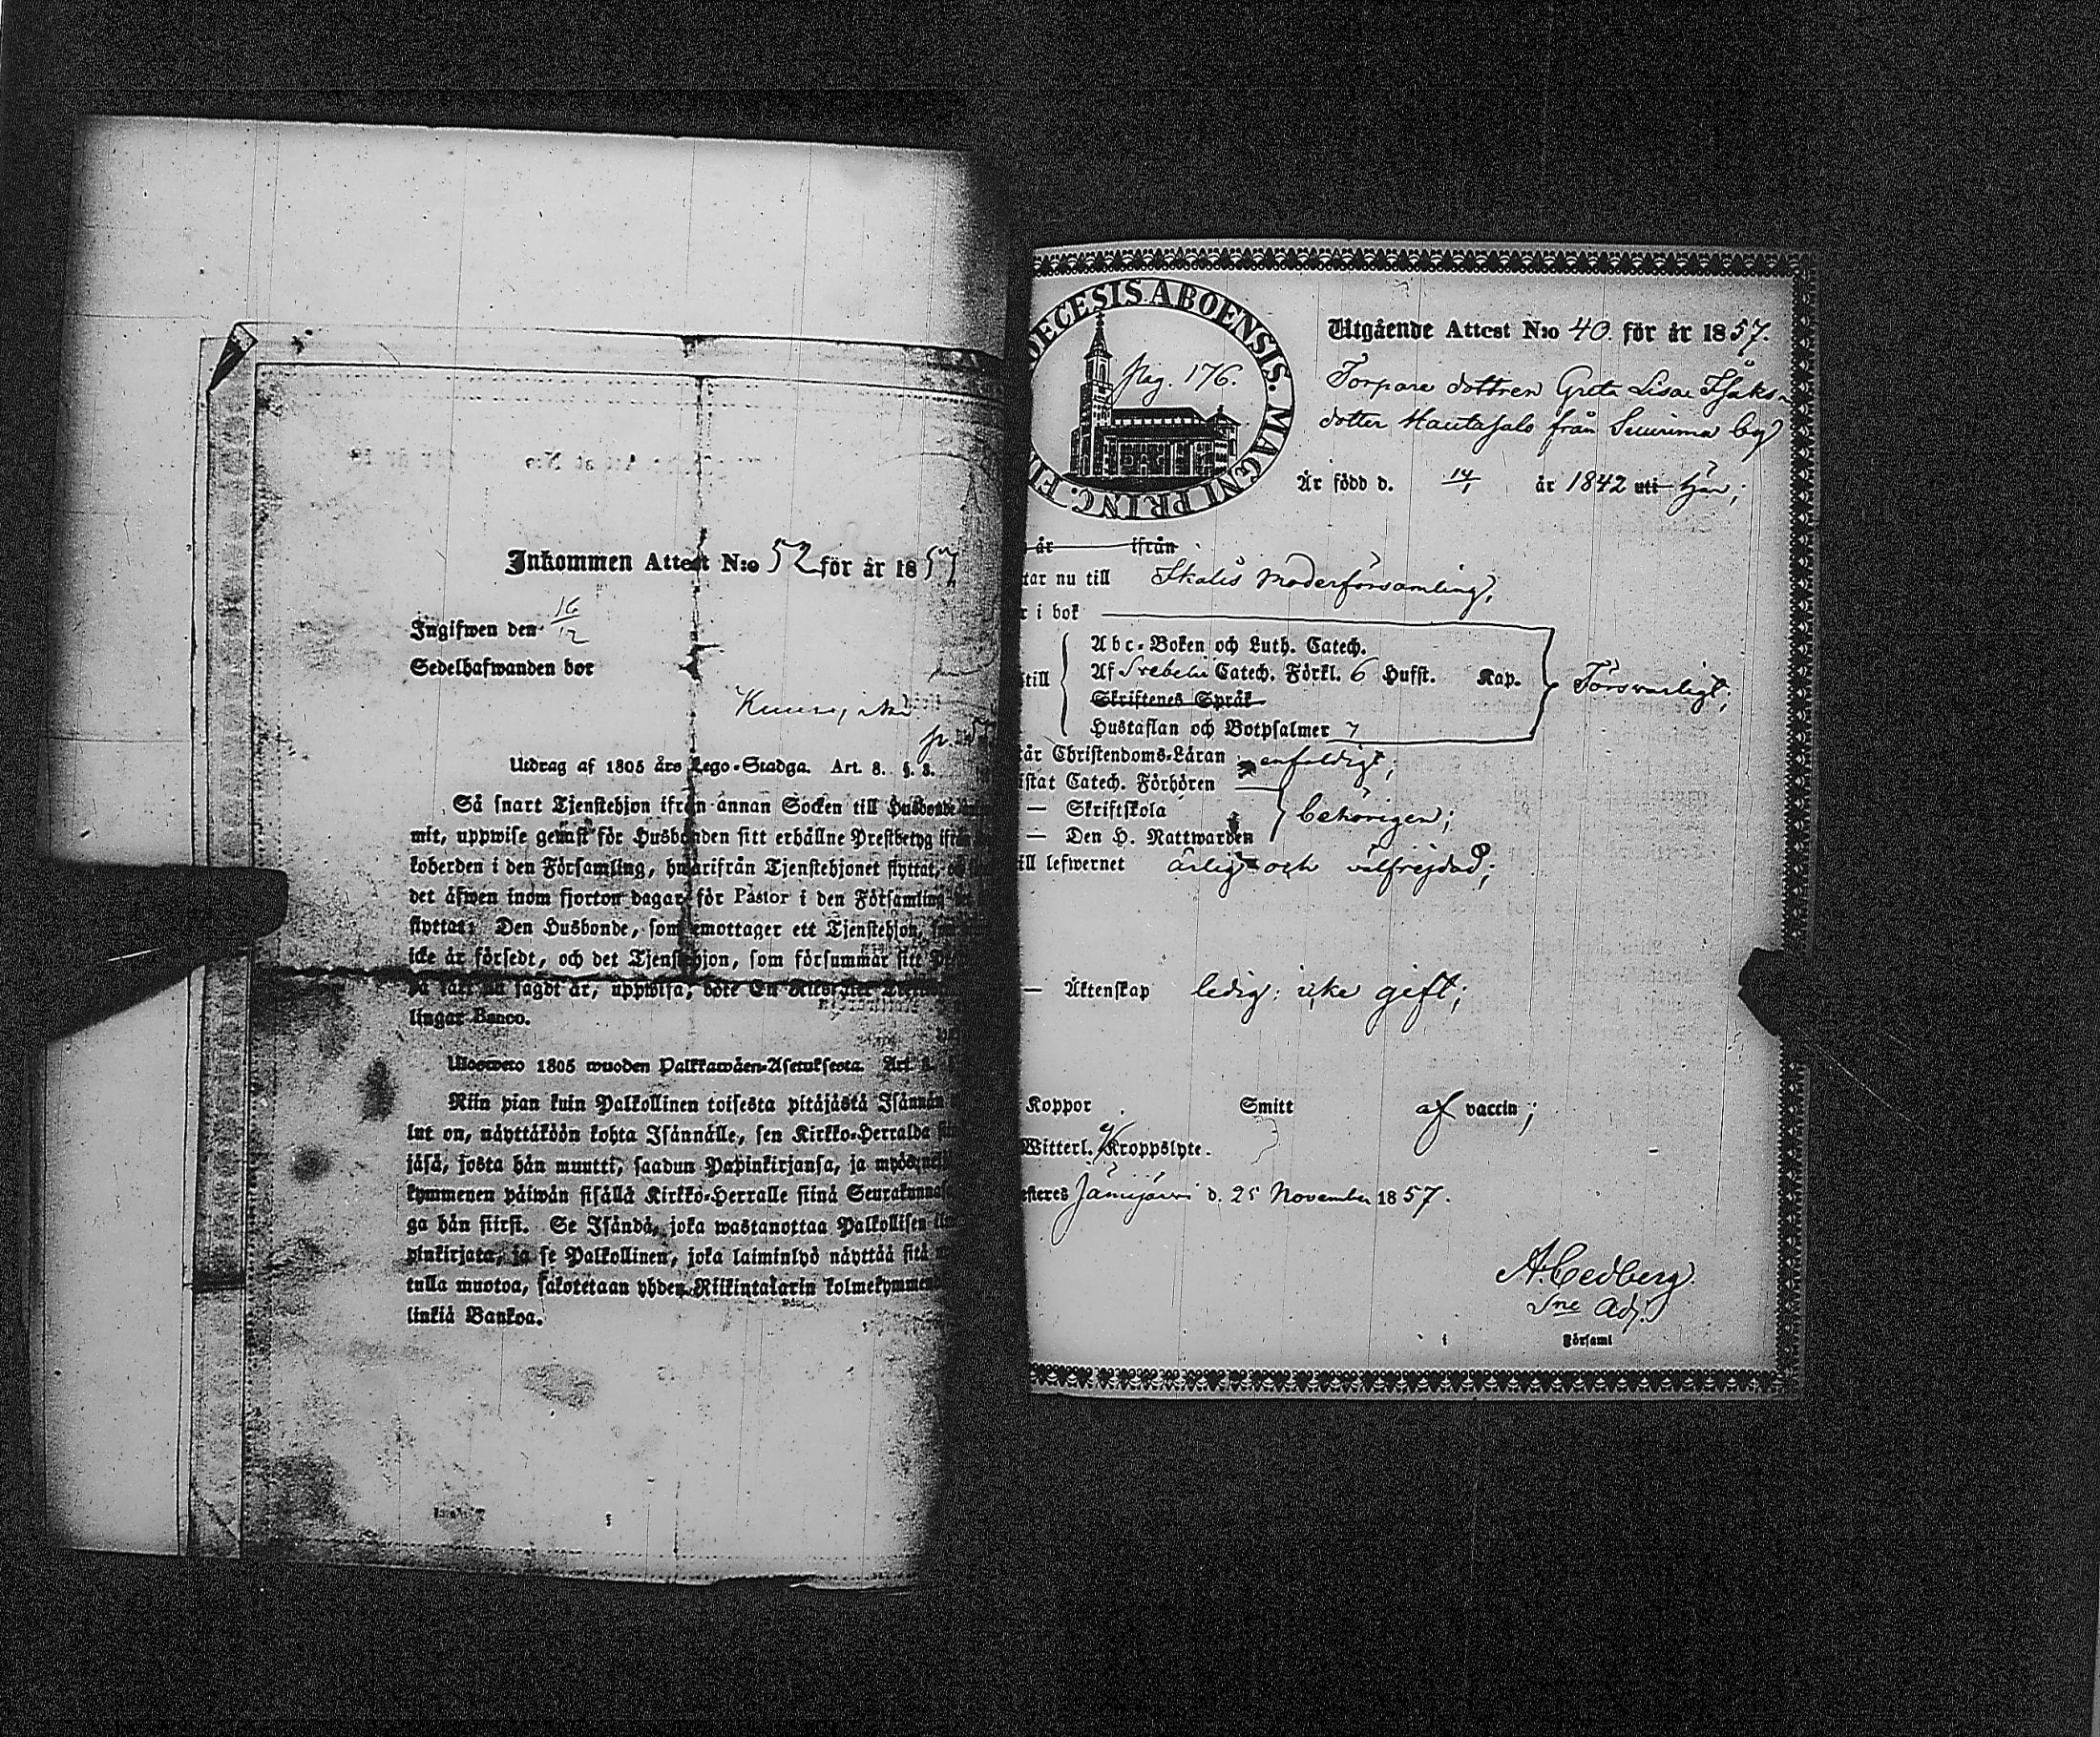 Inkommen Attest N:o 52 för år 1857
Ingifwen den 16/12
Sedelhafwanden bor
Utdrag af 1805 års Lego-Stadga. Art. 8. §. 8.
Så snart Tjenstehjon ifrån annan Socken till Husbonde
mit, uppwise genast för Husbonden sitt erhållne Prestbetyg ifrån
koherden i den Församling, hwarifrån Tjenstehjonet flyttat,
det äfwen inom fjorton dagar för Pastor i den Församling
flyttat: Den Husbonde, som emottager ett Tjenstehjon,
icke är försedt, och det Tjenstehjon, som försummar sitt
sagdt är, uppwisa, böte En
lingar Banco.
Uloswero 1805 wuoden Palkkawäen-Asetuksesta. Art.
Niin pian kuin Palkollinen toisesta pitäjästä Isännän
lut on, näyttäköön kohta Isännälle, sen Kirkko-Herralda
jäsä, josta hän muutti, saadun Papinkirjansa, ja myös
kymmenen päiwän sisällä Kirkko-Herralle siinä Seurakunnas
ga hän siirsi. Se Isändä, joka wastanottaa Palkollisen
pinkirjata, ja se Palkollinen, joka laiminlyö näyttää sitä
tulla muotoa, sakotetaan yhden Riikintalarin kolmekymmen
linkiä Bankoa.
DECESIS ABOENSIS. MAGNI PRINC. FI
Pag. 176.
Utgående Attest N:o 40. för år 1857.
Torpare dottren Greta Lisa Isaks-
dotter Hautasalo från Suurima by
Är född d. 14/1 år 1842 uti här;
år ifrån
tar nu till Ikalis Moderförsamling,
r i bok
Abc-Boken och Luth. Catech.
till Af Svebelii Catech. Förkl. 6 Hufst. Kap. Försvarligt;
Skriftenes Språk
Hustaflan och Botpsalmer 7
är Christendoms-Läran enfaldigt;
istat Catech. Förhören
— Skriftskola behörigen;
— Den H. Nattwarden
ill lefwernet ärlig och välfrejdad;
— Äktenskap ledig: icke gift;
Koppor Smitt af vaccin;
Witterl. Kroppslyte.
esteres Jämijärvi d. 25 November 1857.
A. Cedberg.
Sne Adj.
i Församl